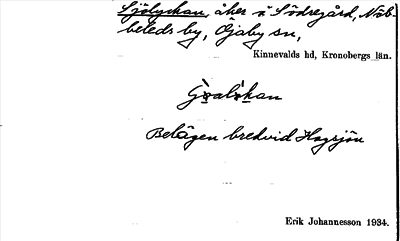 Sjölyckan, åker i Södregård, Nöb-
beleds by, Öjaby sn,
Kinnevalds hd, Kronobergs län.
Belägen bredvid Hagsjön
Erik Johannesson 1934.